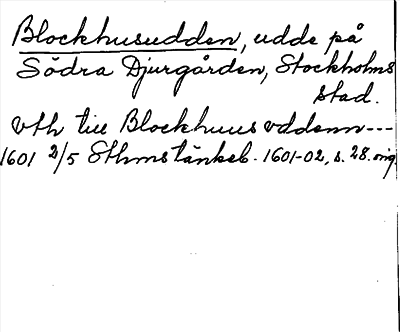 Blockhusudden, udde på
Södra Djurgården, Stockholms
stad.
vth till Blockhuus vddenn---
1601 2/5 Sthms tänkeb. 1601-02, s. 28. orig.